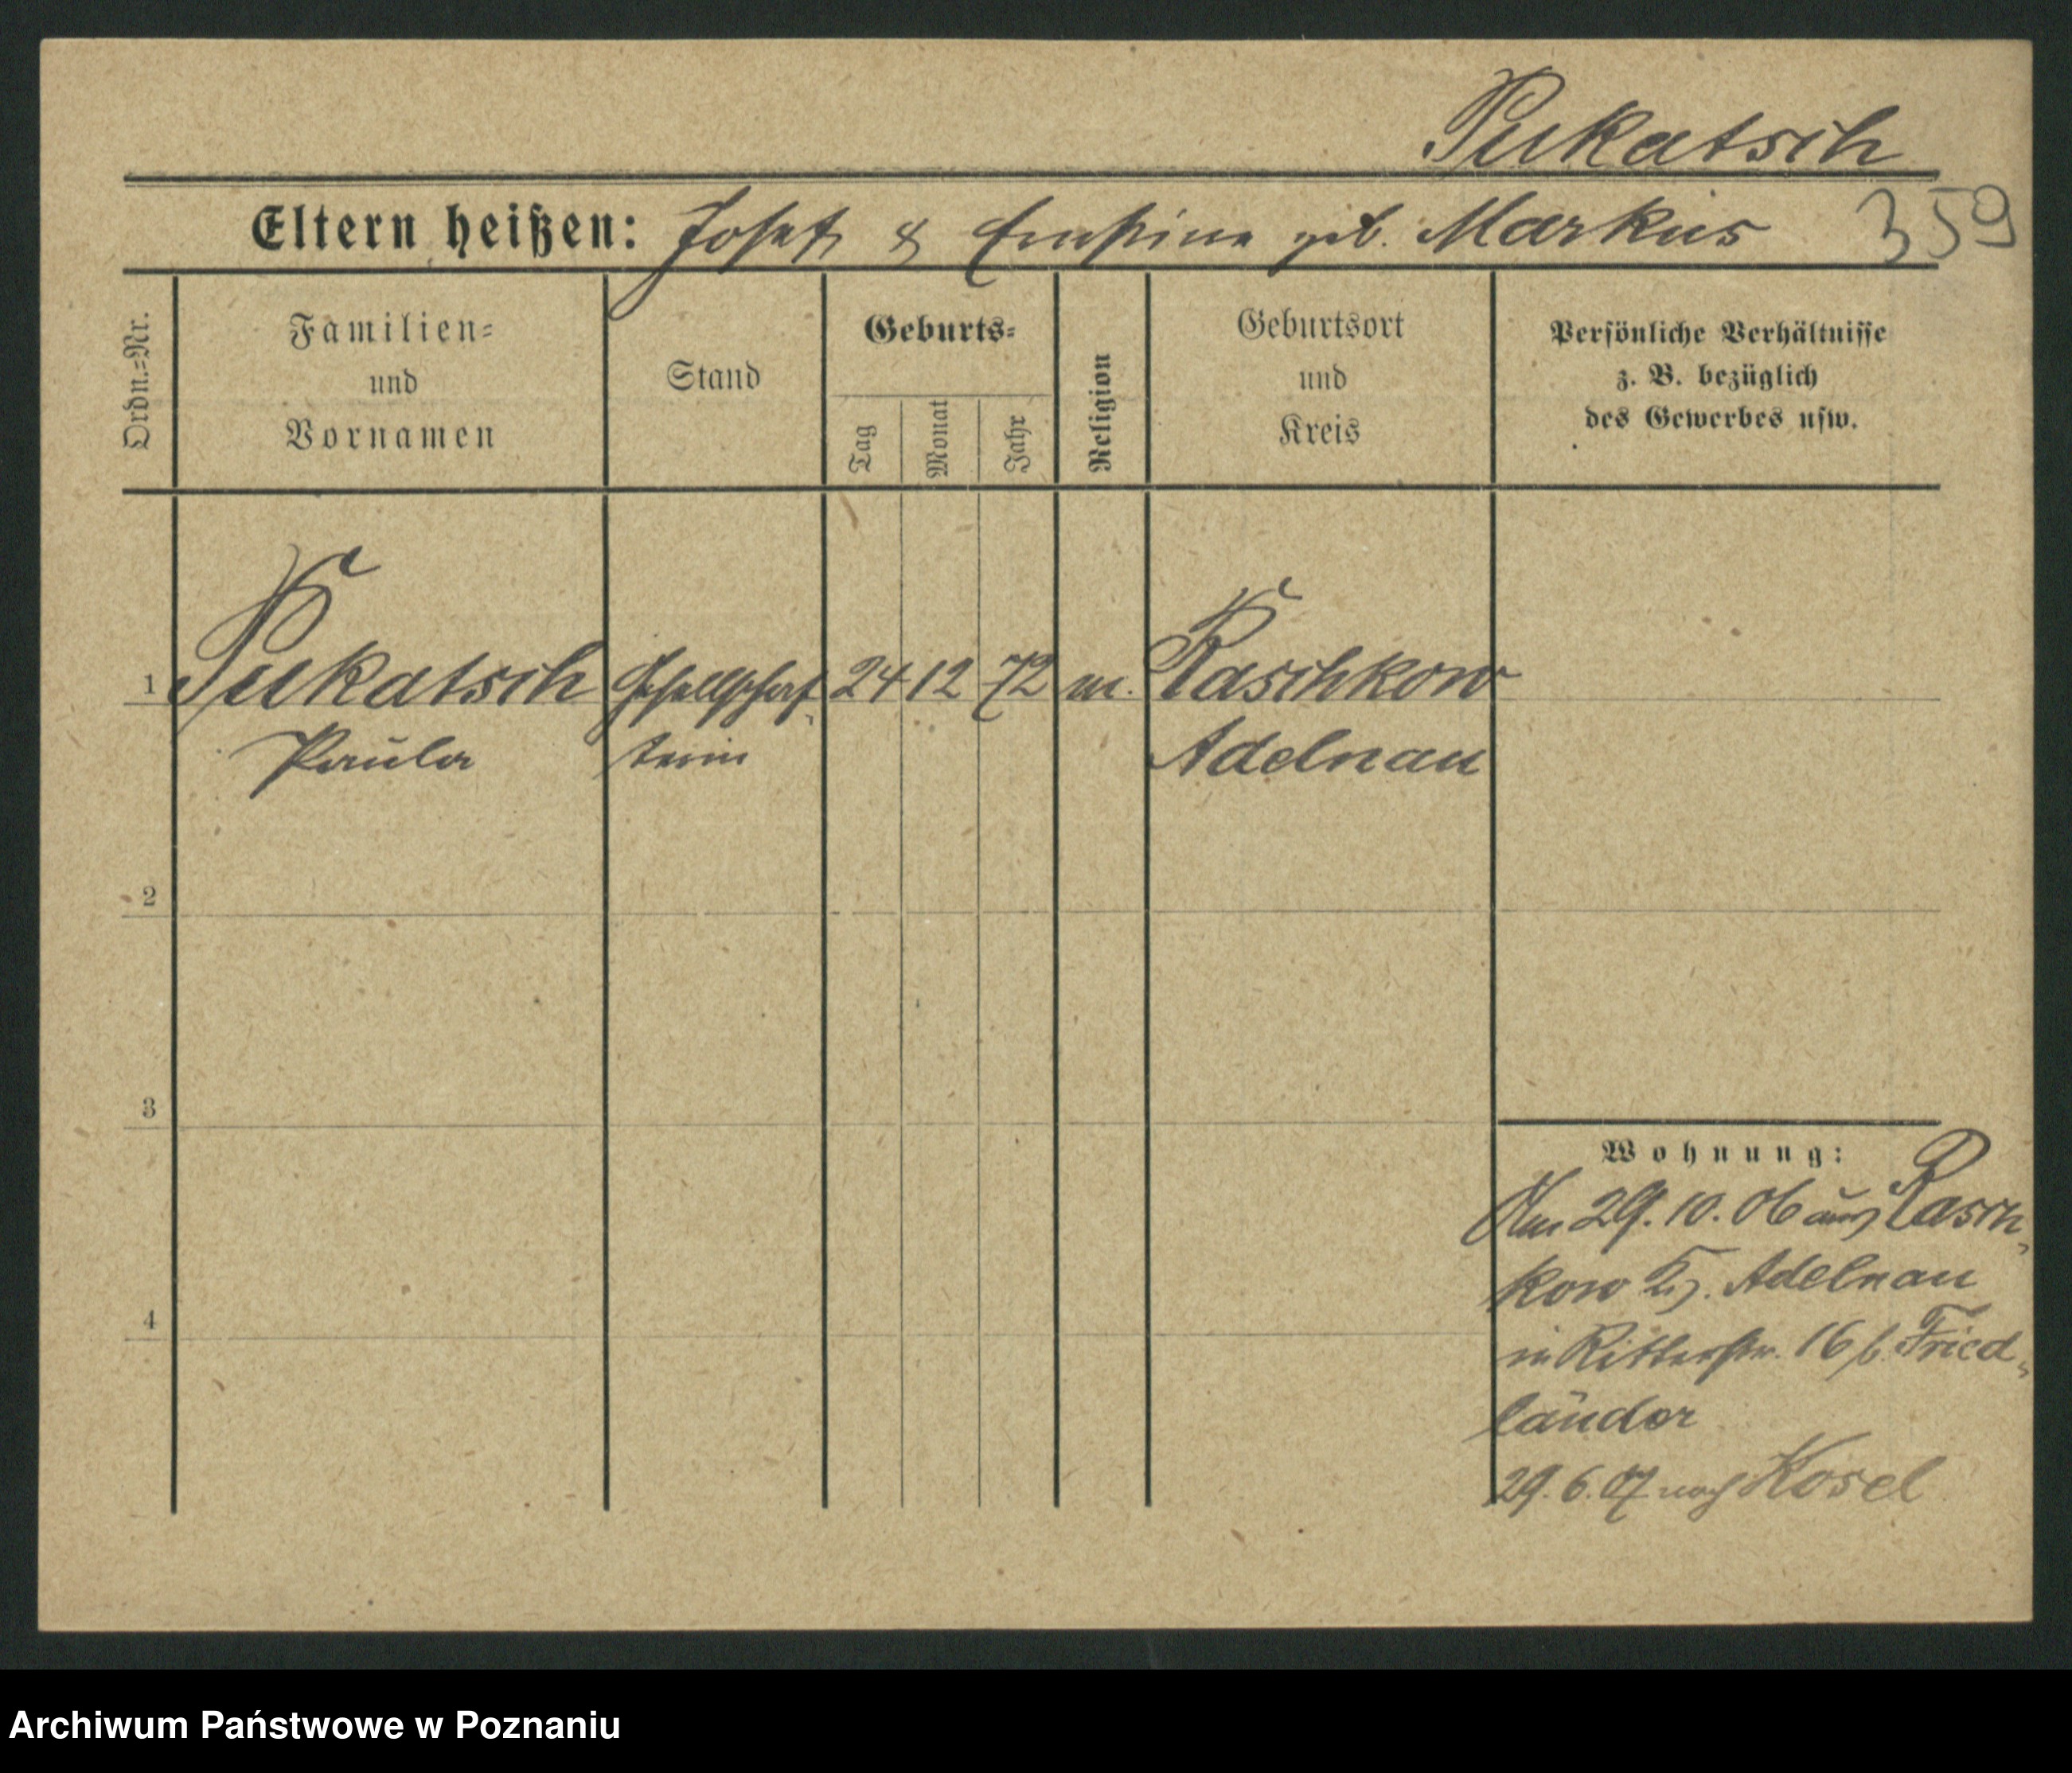 Pukatsch
Eltern heißen: Josef & Ernestine geb. Markus 359
Ordn.=Nr.
Familien=
und
Vornamen
Stand
Geburts=
Tag
Monat
Jahr
Religion
Geburtsort
und
Kreis
Persönliche Verhältnisse
z. B. bezüglich
des Gewerbes usw.
1 Pukatsch Gesellschaf- 24 12 72 m. Raschkow
Paula terin Adelnau
2
3
4
Wohnung:
Am 29.10.06 aus Rasch-
kow Kr. Adelnau
in Ritterstr. 16 b. Fried-
länder
29.6.07 nach Kosel
Archiwum Państwowe w Poznaniu